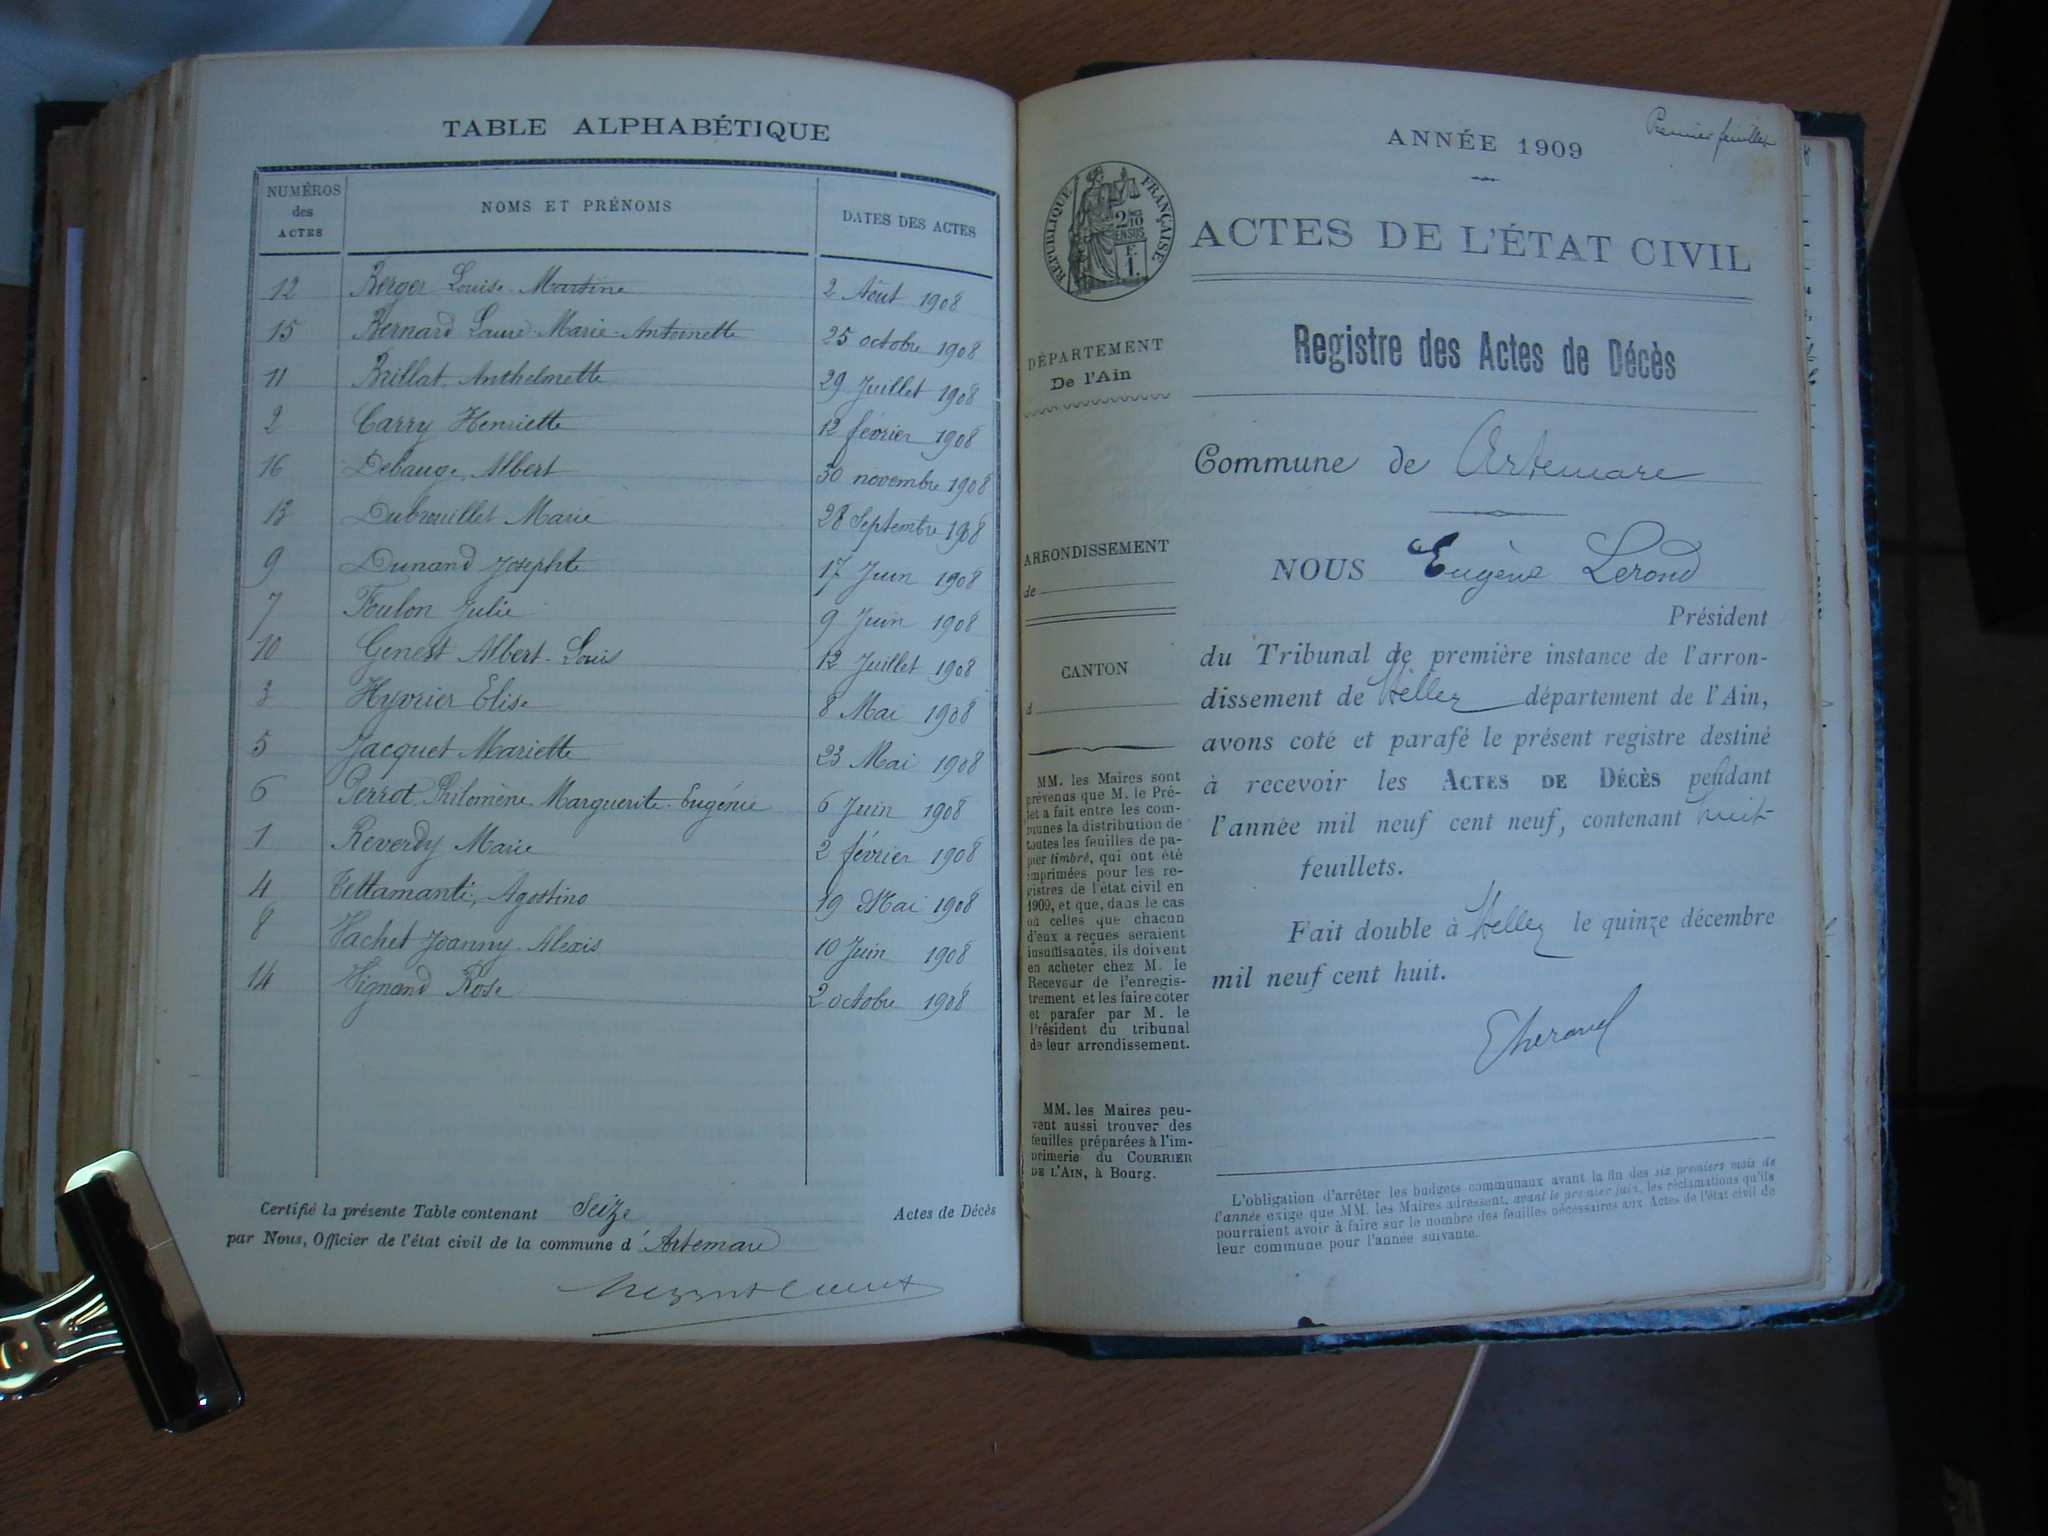 TABLE ALPHABÉTIQUE
NUMÉROS des ACTES NOMS ET PRÉNOMS DATES DES ACTES
12 Berger Louise Martine 2 Août 1908
15 Bernard Laure Marie-Antoinette 25 octobre 1908
11 Brillat Anthelmette 29 Juillet 1908
2 Carry Henriette 12 février 1908
16 Debauge Albert 30 novembre 1908
13 Dubrouillet Marie 28 Septembre 1908
9 Dunand Josephte 17 Juin 1908
7 Foulon Julie 9 Juin 1908
10 Genest Albert-Louis 12 Juillet 1908
3 Hyvrier Elise 8 Mai 1908
5 Jacquet Mariette 23 Mai 1908
6 Perrot Philomène Marguerite Eugénie 6 Juin 1908
1 Reverdy Marie 2 février 1908
4 Tettamanti, Agostino 19 Mai 1908
8 Vachet Joanny Alexis 10 Juin 1908
14 Vignand Rose 2 octobre 1908
Certifié la présente Table contenant Seize Actes de Décès
par Nous, Officier de l'état civil de la commune d'Artemare
Premier feuillet
ANNÉE 1909
RÉPUBLIQUE FRANÇAISE
2/10 EN SUS
F.
1.
ACTES DE L'ÉTAT CIVIL
Registre des Actes de Décès
DÉPARTEMENT
De l'Ain
Commune de Artemare
ARRONDISSEMENT
de
CANTON
d
NOUS Eugène Lerond
Président
du Tribunal de première instance de l'arron-
dissement de Belley département de l'Ain,
avons coté et parafé le présent registre destiné
à recevoir les ACTES DE DÉCÈS pendant
l'année mil neuf cent neuf, contenant huit
feuillets.
Fait double à Belley le quinze décembre
mil neuf cent huit.
MM. les Maires sont
prévenus que M. le Pré-
fet a fait entre les com-
munes la distribution de
toutes les feuilles de pa-
pier timbré, qui ont été
imprimées pour les re-
gistres de l'état civil en
1909, et que, dans le cas
où celles que chacun
d'eux a reçues seraient
insuffisantes, ils doivent
en acheter chez M. le
Receveur de l'enregis-
trement et les faire coter
et parafer par M. le
Président du tribunal
de leur arrondissement.
MM. les Maires peu-
vent aussi trouver des
feuilles préparées à l'im-
primerie du COURRIER
DE L'AIN, à Bourg.
L'obligation d'arrêter les budgets communaux avant la fin des six premiers mois de
l'année exige que MM. les Maires adressent, avant le premier juin, les réclamations qu'ils
pourraient avoir à faire sur le nombre des feuilles nécessaires aux Actes de l'état civil de
leur commune pour l'année suivante.